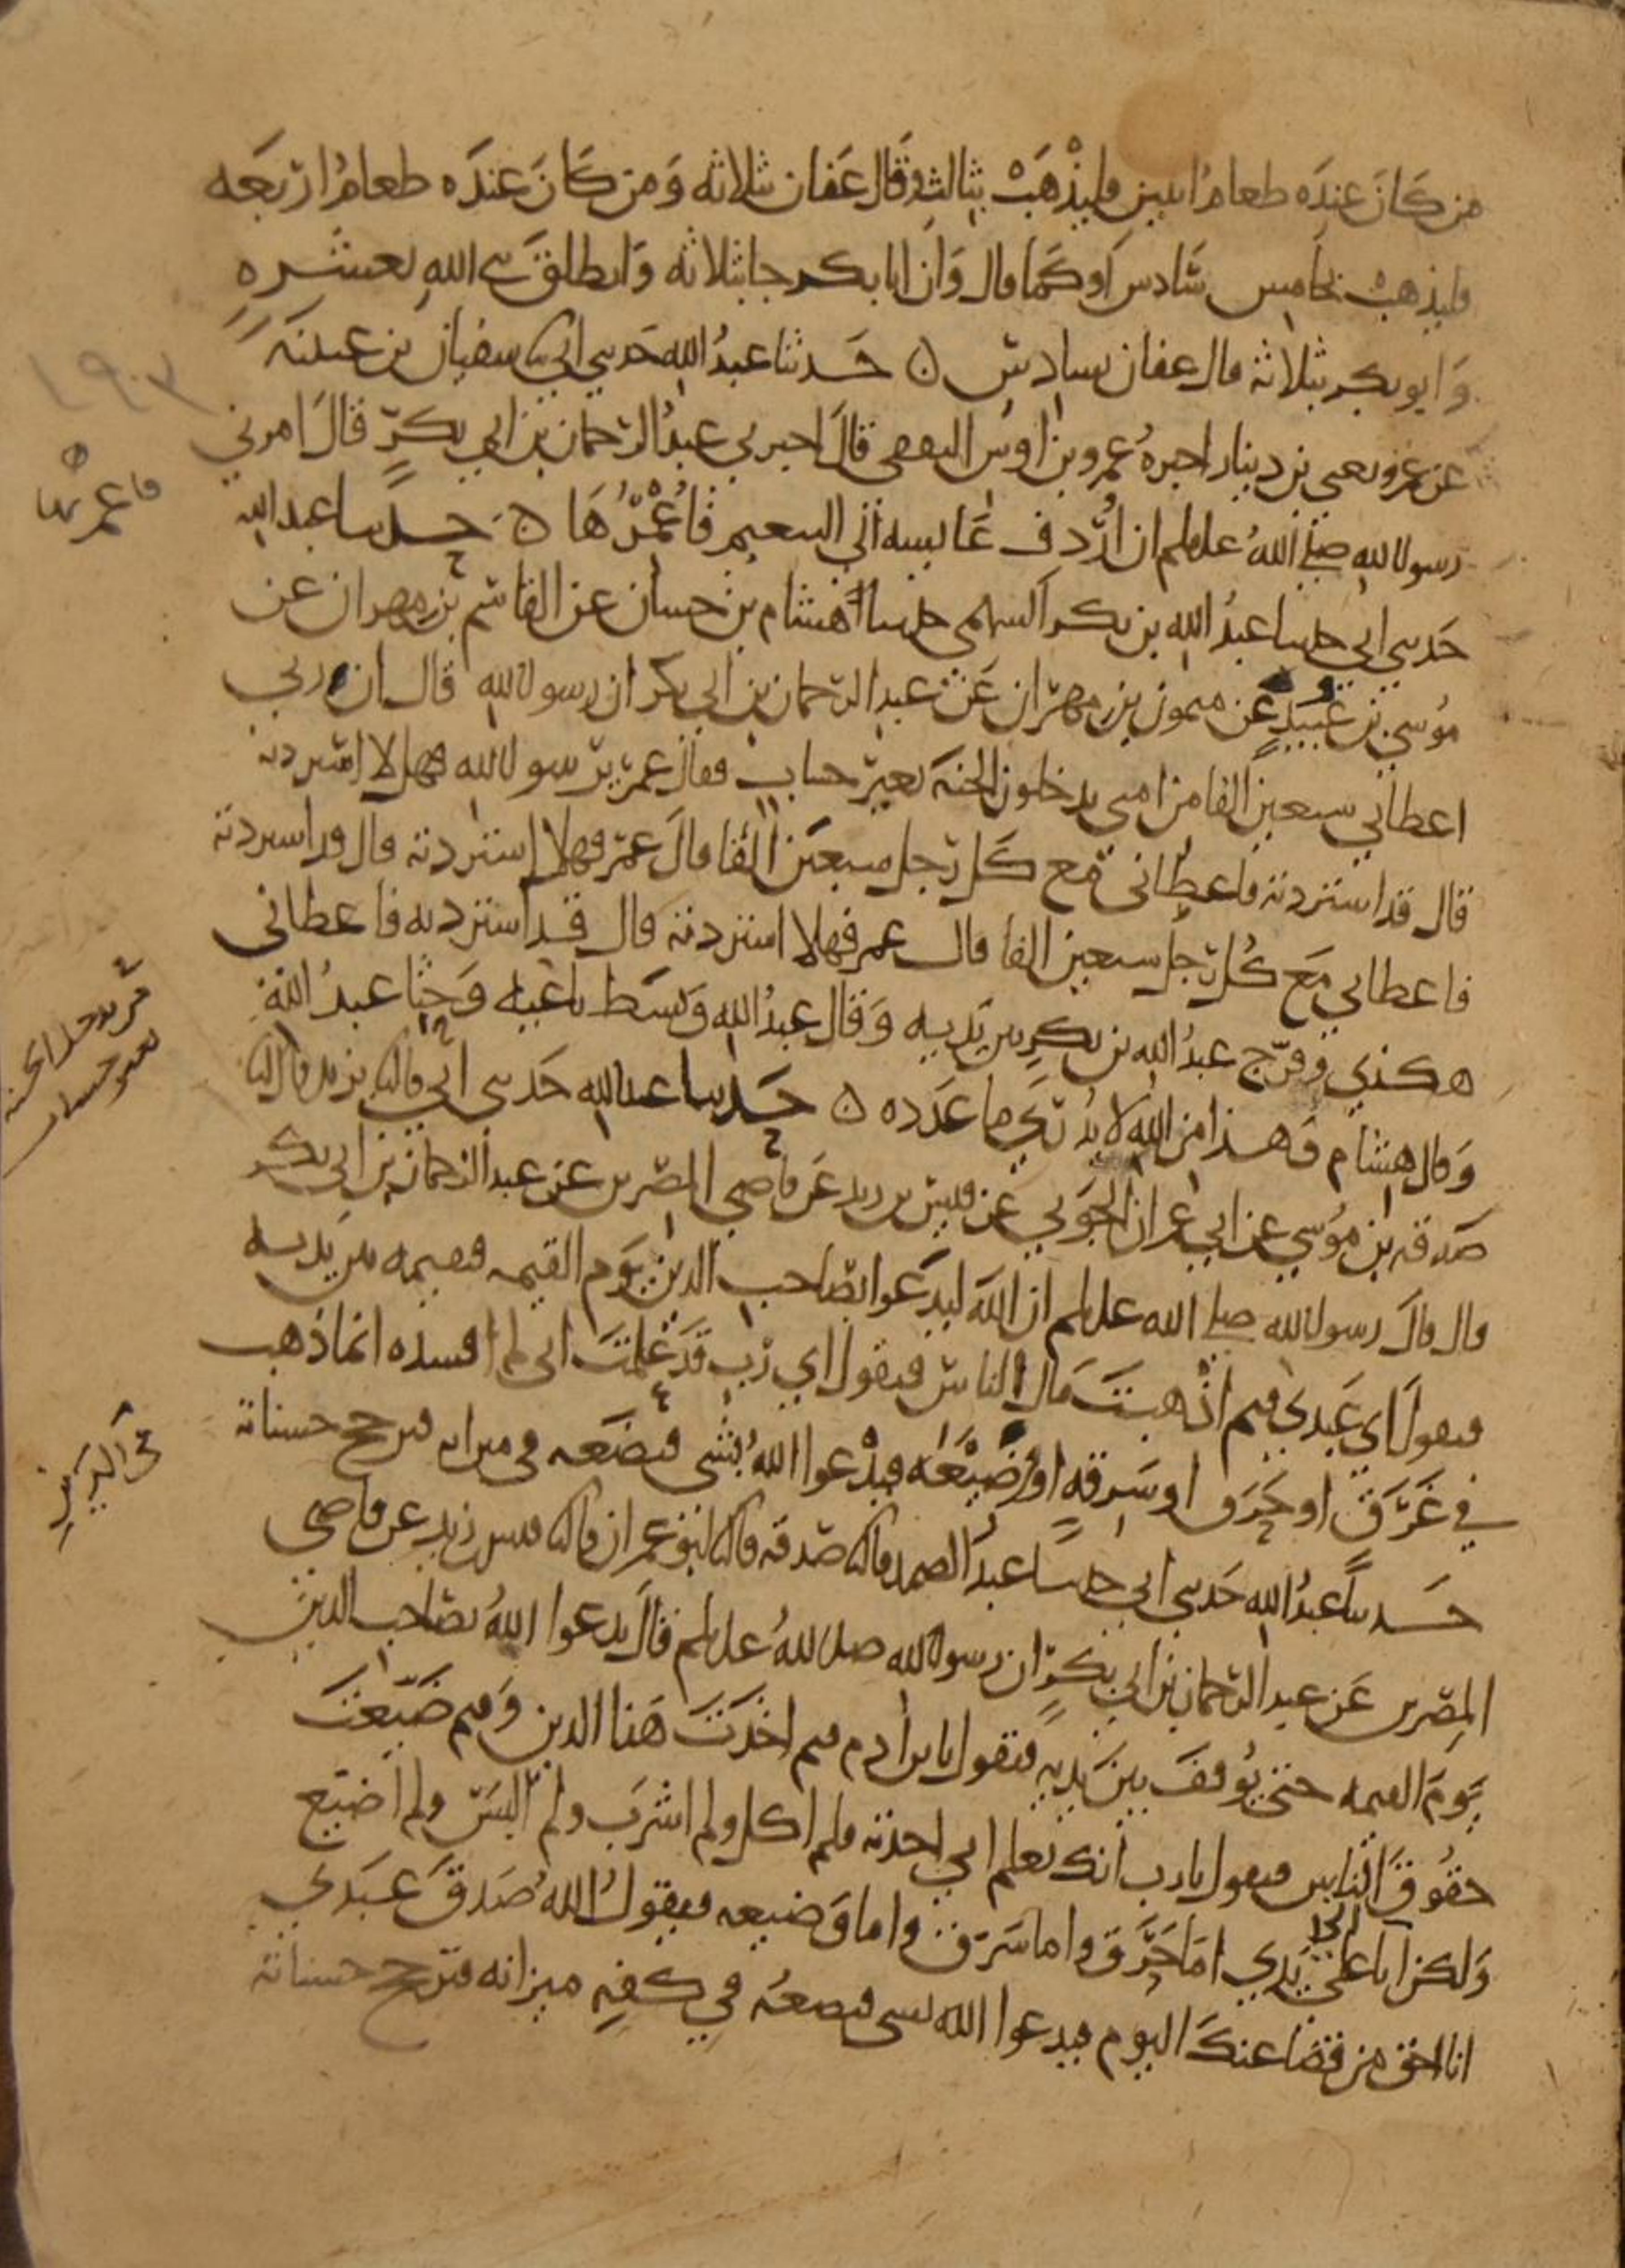 من كان عنده طعام اثنين فليذهب بثالث وقال عفان بثلاثه ومن كان عنده طعام اربعه
فليذهب بخامس سادس او كما قال وان ابا بكر جا بثلاثه وانطلق نبي الله بعشره
وابو بكر بثلاثه قال عفان بسادس ه حدثنا عبد الله حدثني ابي نا سفيان بن عيينه
عن عمرو يعني بن دينار اخبره عمرو بن اوس الثقفي قال اخبرني عبد الرحمان بن ابي بكر قال امرني
رسول الله صلى الله عليه وسلم ان اردف عايشه الى التنعيم فاعمرها ه حدثنا عبد الله
حدثني ابي حدثنا عبد الله بن بكر السهمي حدثنا هشام بن حسان عن القاسم بن مهران عن
موسى بن عبيد عن ميمون بن مهران عن عبد الرحمان بن ابي بكر ان رسول الله قال ان ربي
اعطاني سبعين الفا من امتي يدخلون الجنه بغير حساب فقال عمر يرسول الله فهلا استزدته
قال قد استزدته فاعطاني مع كل رجل سبعين الفا قال عمر فهلا استزدته قال قد استزدته
فاعطاني مع كل رجل سبعين الفا قال عمر فهلا استزدته قال قد استزدته فاعطاني
هكذي وفرج عبد الله بن بكر بين يديه وقال عبد الله وبسط باعيه وحثا عبد الله
وقال هشام وهذا من الله لا يدرى ما عدده ه حدثنا عبد الله حدثني ابي قال نا يزيد قال انا
صدقه بن موسى عن ابي عمران الجوني عن قيس بن زيد عن قاضي المصرين عن عبد الرحمان بن ابي بكر
قال قال رسول الله صلى الله عليه وسلم ان الله ليدعوا بصاحب الدين يوم القيمه فيقيمه بين يديه
فيقول اي عبدي فيم اذهبت مال الناس فيقول اي رب قد علمت اني لم افسده انما ذهب
في غرق او حرق او سرقه او وضيعه فيدعوا الله بشي فيضعه في ميزانه فترجح حسناته
حدثنا عبد الله حدثني ابي حدثنا عبد الصمد قال نا صدقه قال نا ابو عمران قال نا قيس بن زيد عن قاضي
المصرين عن عبد الرحمان بن ابي بكر ان رسول الله صلى الله عليه وسلم قال يدعوا الله بصاحب الدين
يوم القيمه حتى يوقف بين يديه فيقول يا بن ادم فيم اخذت هذا الدين وفيم ضيعت
حقوق الناس فيقول يا رب انك تعلم اني اخذته فلم اكل ولم اشرب ولم البس ولم اضيع
ولكن اتا على يدي اما حرق واما سرق واما وضيعه فيقول الله صدق عبدي
انا احق من قضا عنك اليوم فيدعوا الله بشي فيضعه في كفه ميزانه فترجح حسناته